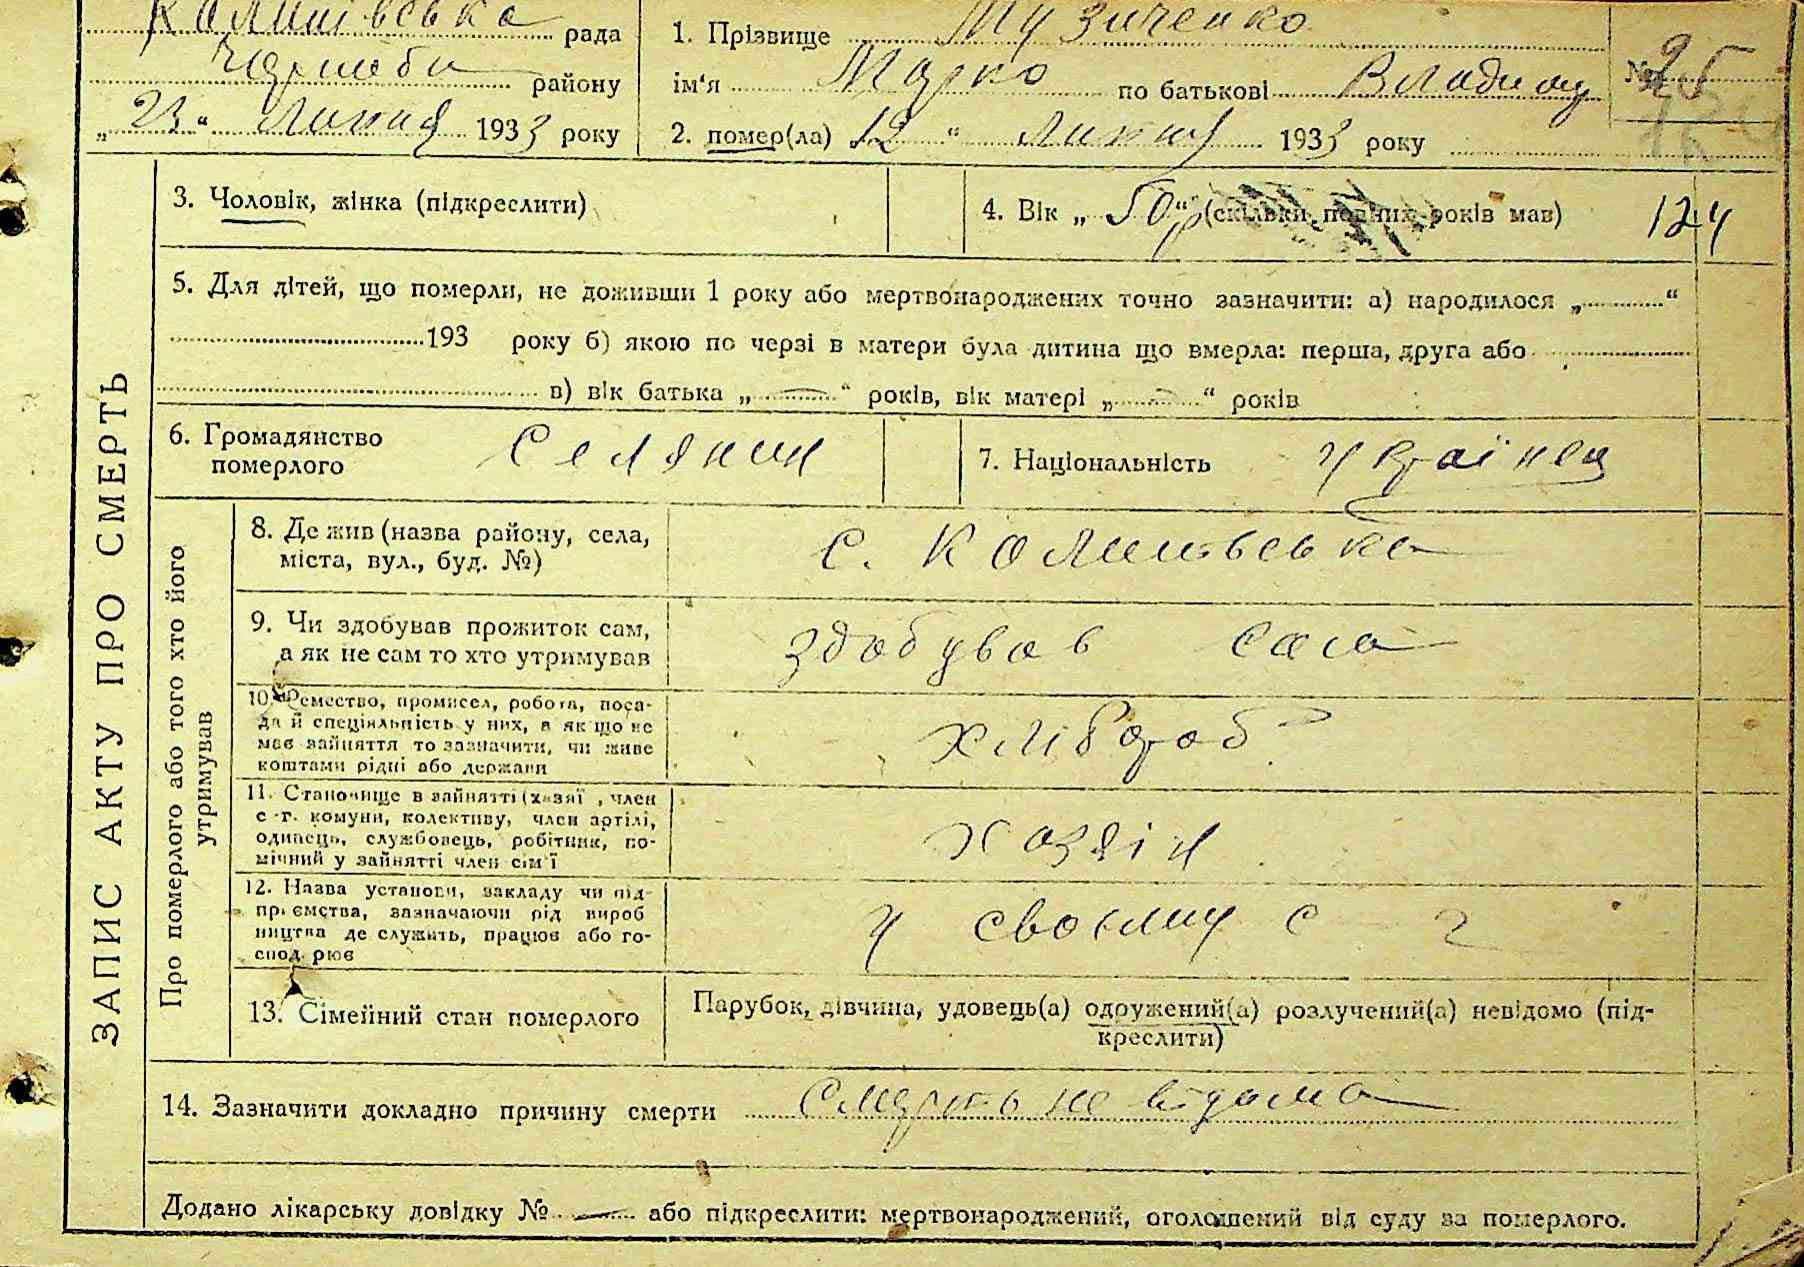 Калинівська рада
району
„23“ липня 1933 року
1. Прізвище Музиченко
ім'я Марко по батькові Владим
2. помер(ла) 12 “ липня 1933 року
№ 25
ЗАПИС АКТУ ПРО СМЕРТЬ
3. Чоловік, жінка (підкреслити)
4. Вік „50р“ (скільки повних років мав)
124
5. Для дітей, що померли, не доживши 1 року або мертвонароджених точно зазначити: а) народилося „..........“
193 року б) якою по черзі в матери була дитина що вмерла: перша, друга або
в) вік батька „ — “ років, вік матері „ — “ років
6. Громадянство
померлого
Селянин
7. Національність українец
Про померлого або того хто його
утримував
8. Де жив (назва району, села,
міста, вул., буд. №)
с. Калинівська
9. Чи здобував прожиток сам,
а як не сам то хто утримував
здобував сам
10. Ремество, промисел, робота, поса-
да й спеціяльність у них, а як що не
має зайняття то зазначити, чи живе
коштами рідні або держави
хлібороб
11. Становище в зайнятті (хазяї , член
с.-г. комуни, колективу, член артілі,
одинець, службовець, робітник, по-
мічний у зайнятті член сім'ї
хазяін
12. Назва установи, закладу чи під-
приємства, зазначаючи рід вироб
ництва де служить, працює або го-
спод рює
у своєму с г
13. Сімейний стан померлого
Парубок, дівчина, удовець(а) одружений(а) розлучений(а) невідомо (під-
креслити)
14. Зазначити докладно причину смерти Смерть не відома
Додано лікарську довідку № — або підкреслити: мертвонароджений, оголошений від суду за померлого.